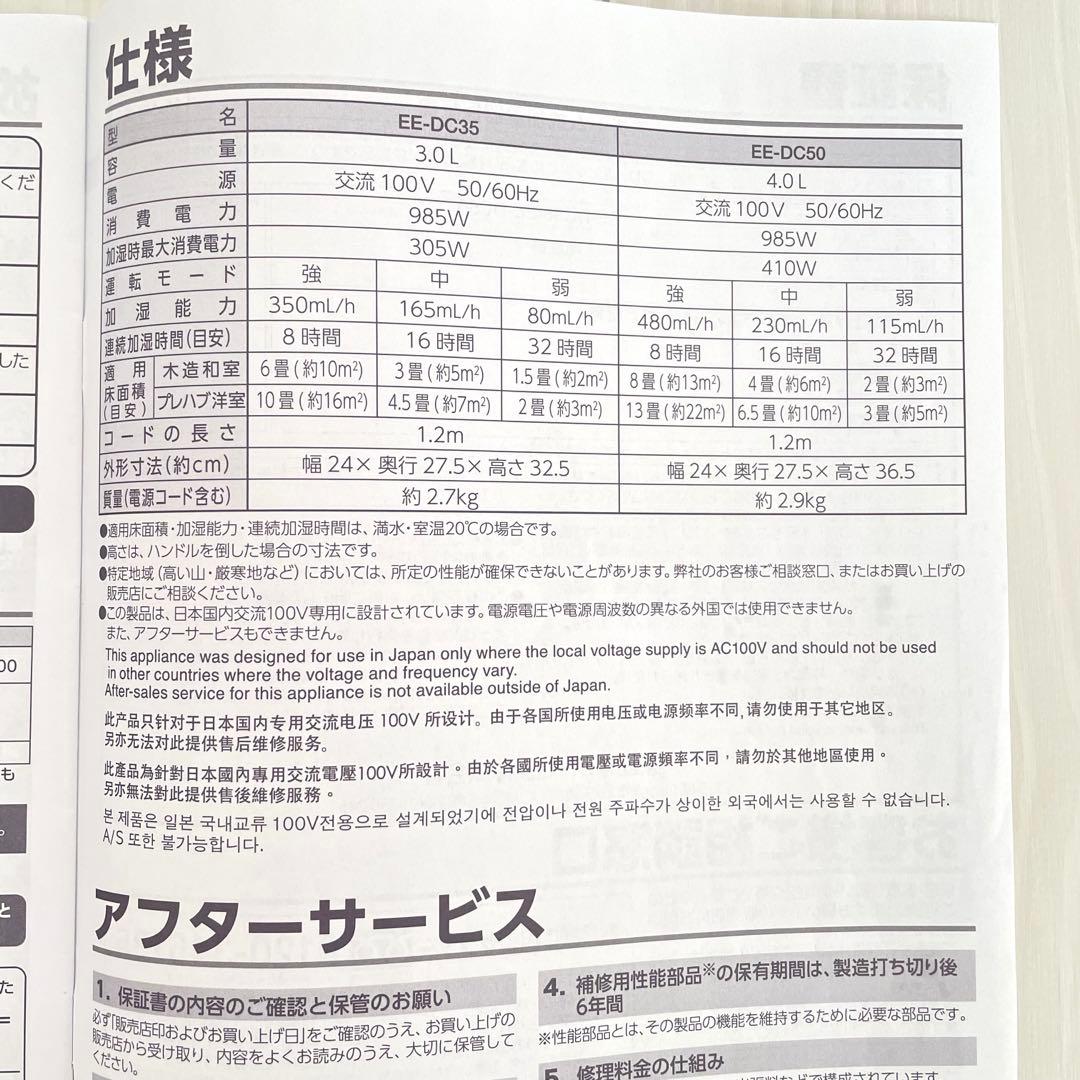 仕様
型名 EE-DC35 EE-DC50
容量 3.0L 4.0L
電源 交流100V 50/60Hz 交流100V 50/60Hz
消費電力 985W 985W
加湿時最大消費電力 305W 410W
運転モード 強 中 弱 強 中 弱
加湿能力 350mL/h 165mL/h 80mL/h 480mL/h 230mL/h 115mL/h
連続加湿時間(目安) 8時間 16時間 32時間 8時間 16時間 32時間
適用床面積(目安) 木造和室 6畳(約10m²) 3畳(約5m²) 1.5畳(約2m²) 8畳(約13m²) 4畳(約6m²) 2畳(約3m²)
プレハブ洋室 10畳(約16m²) 4.5畳(約7m²) 2畳(約3m²) 13畳(約22m²) 6.5畳(約10m²) 3畳(約5m²)
コードの長さ 1.2m 1.2m
外形寸法(約cm) 幅24×奥行27.5×高さ32.5 幅24×奥行27.5×高さ36.5
質量(電源コード含む) 約2.7kg 約2.9kg
●適用床面積・加湿能力・連続加湿時間は、満水・室温20℃の場合です。
●高さは、ハンドルを倒した場合の寸法です。
●特定地域(高い山・厳寒地など)においては、所定の性能が確保できないことがあります。弊社のお客様ご相談窓口、またはお買い上げの
販売店にご相談ください。
●この製品は、日本国内交流100V専用に設計されています。電源電圧や電源周波数の異なる外国では使用できません。
また、アフターサービスもできません。
This appliance was designed for use in Japan only where the local voltage supply is AC100V and should not be used
in other countries where the voltage and frequency vary.
After-sales service for this appliance is not available outside of Japan.
此产品只针对于日本国内专用交流电压 100V 所设计。由于各国所使用电压或电源频率不同,请勿使用于其它地区。
另亦无法对此提供售后维修服务。
此產品為針對日本國內專用交流電壓100V所設計。由於各國所使用電壓或電源頻率不同,請勿於其他地區使用。
另亦無法對此提供售後維修服務。
본 제품은 일본 국내교류 100V전용으로 설계되었기에 전압이나 전원 주파수가 상이한 외국에서는 사용할 수 없습니다.
A/S 또한 불가능합니다.
アフターサービス
1. 保証書の内容のご確認と保管のお願い
必ず「販売店印およびお買い上げ日」をご確認のうえ、お買い上げの
販売店から受け取り、内容をよくお読みのうえ、大切に保管して
ください。
4. 補修用性能部品※の保有期間は、製造打ち切り後
6年間
※性能部品とは、その製品の機能を維持するために必要な部品です。
5. 修理料金の仕組み
くだ
した
00
も
。
と
た